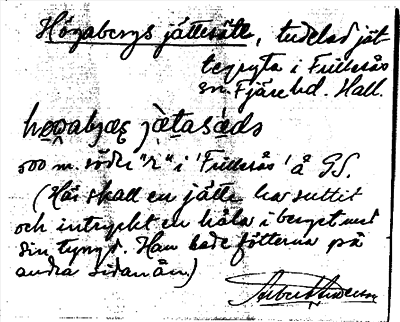 Högabergs jättesäte, tudelad jät-
tegryta i Frillesås
sn. Fjäre hd. Hall.
500 m. söder "r" i 'Frillesås' å GS.
(Här skall en jätte ha suttit
och intryckt en håla i berget med
sin tyngd. Han hade fötterna på
andra sidan ån.)